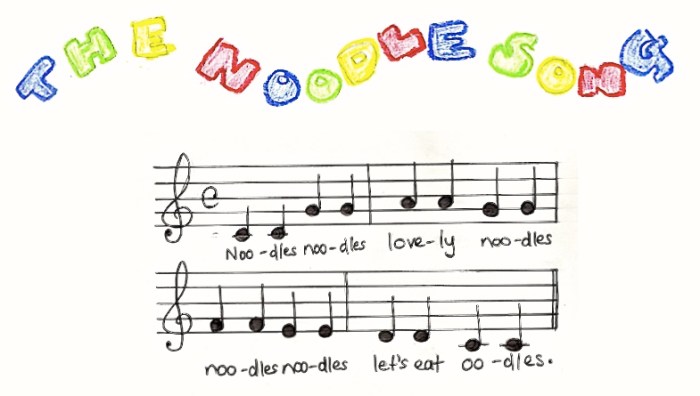 THE NOODLE SONG
Noo-dles noo-dles love-ly noo-dles
noo-dles noo-dles let's eat oo-dles.